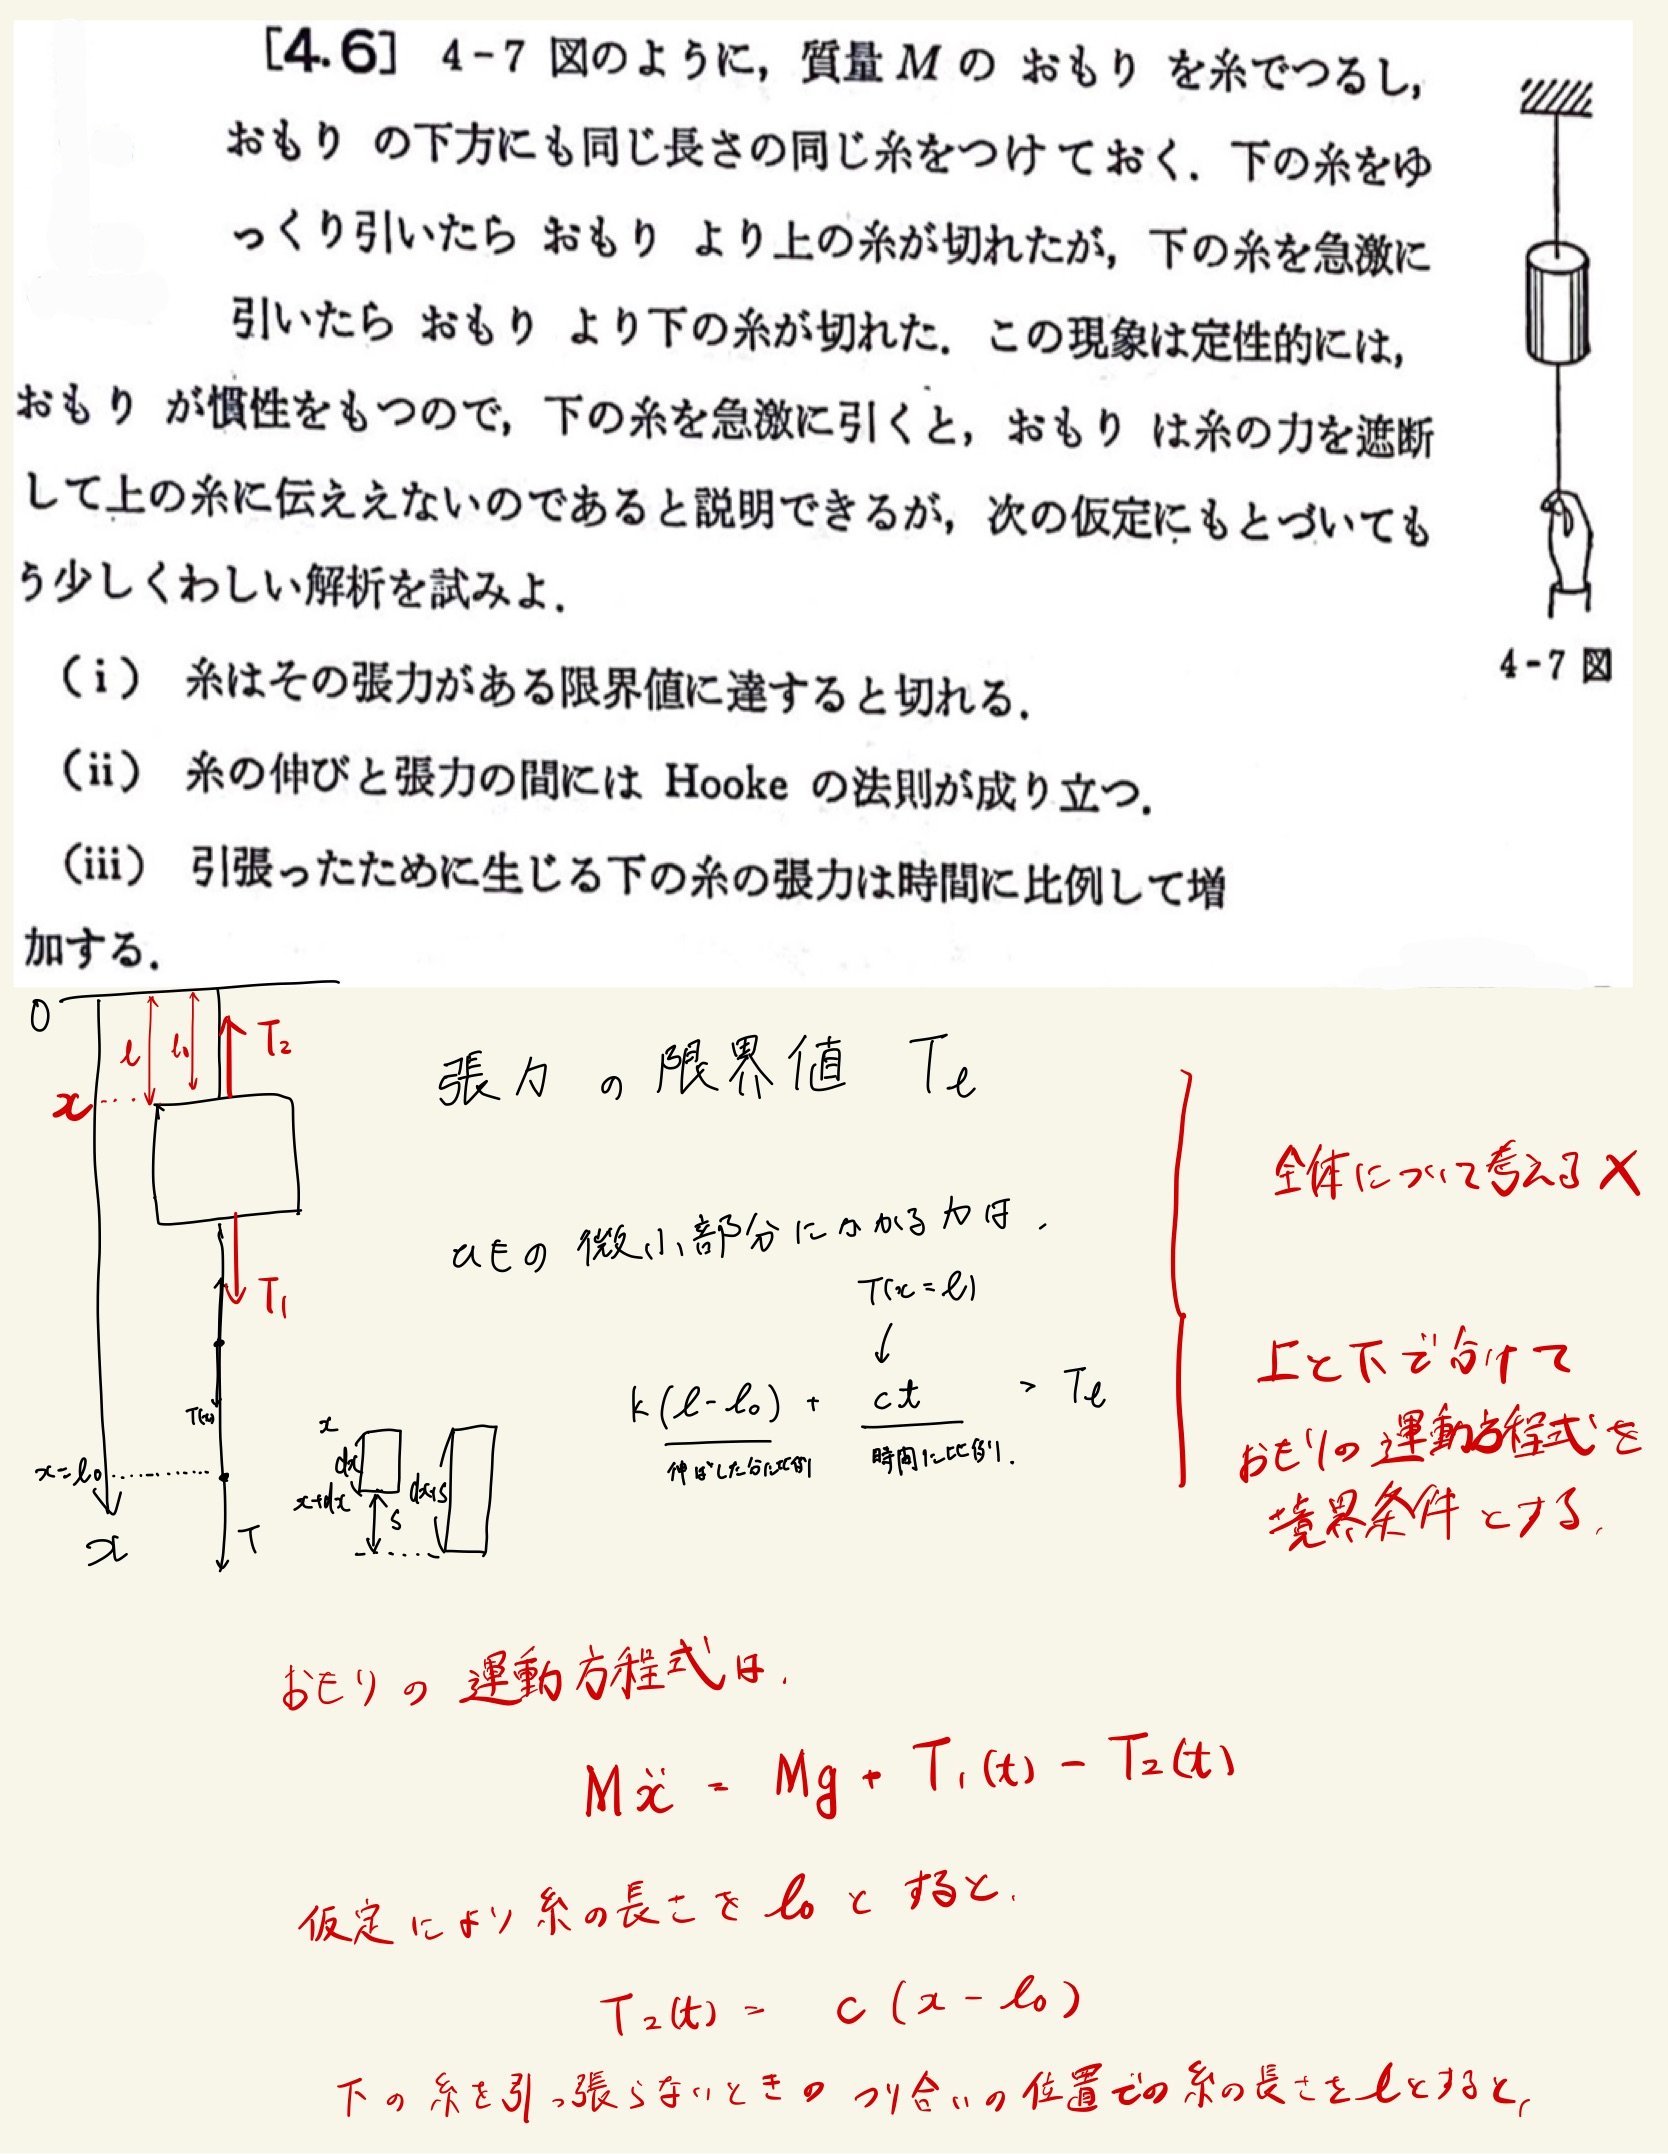 [4.6] 4-7 図のように，質量 M の おもり を糸でつるし，
おもり の下方にも同じ長さの同じ糸をつけておく．下の糸をゆ
っくり引いたら おもり より上の糸が切れたが，下の糸を急激に
引いたら おもり より下の糸が切れた．この現象は定性的には，
おもり が慣性をもつので，下の糸を急激に引くと，おもり は糸の力を遮断
して上の糸に伝ええないのであると説明できるが，次の仮定にもとづいても
う少しくわしい解析を試みよ．
4-7 図
(i) 糸はその張力がある限界値に達すると切れる．
(ii) 糸の伸びと張力の間には Hooke の法則が成り立つ．
(iii) 引張ったために生じる下の糸の張力は時間に比例して増
加する．
O
l
l₀
T₂
x
T₁
T(x)
x=l₀
x
T
x
dx
x+dx
s
dx+s
張力の限界値 Tℓ
の微小部分にかかる力は．
T(x=l)
k(l-l₀) + ct > Tℓ
伸ばした分に比例
時間に比例．
全体について考える×
上と下で分けて
おもりの運動方程式を
境界条件とする．
おもりの運動方程式は．
Mẍ = Mg + T₁(t) - T₂(t)
仮定により糸の長さを l₀ とすると．
T₂(t) = c(x-l₀)
下の糸を引っ張らないときのつり合いの位置での糸の長さを l とすると，